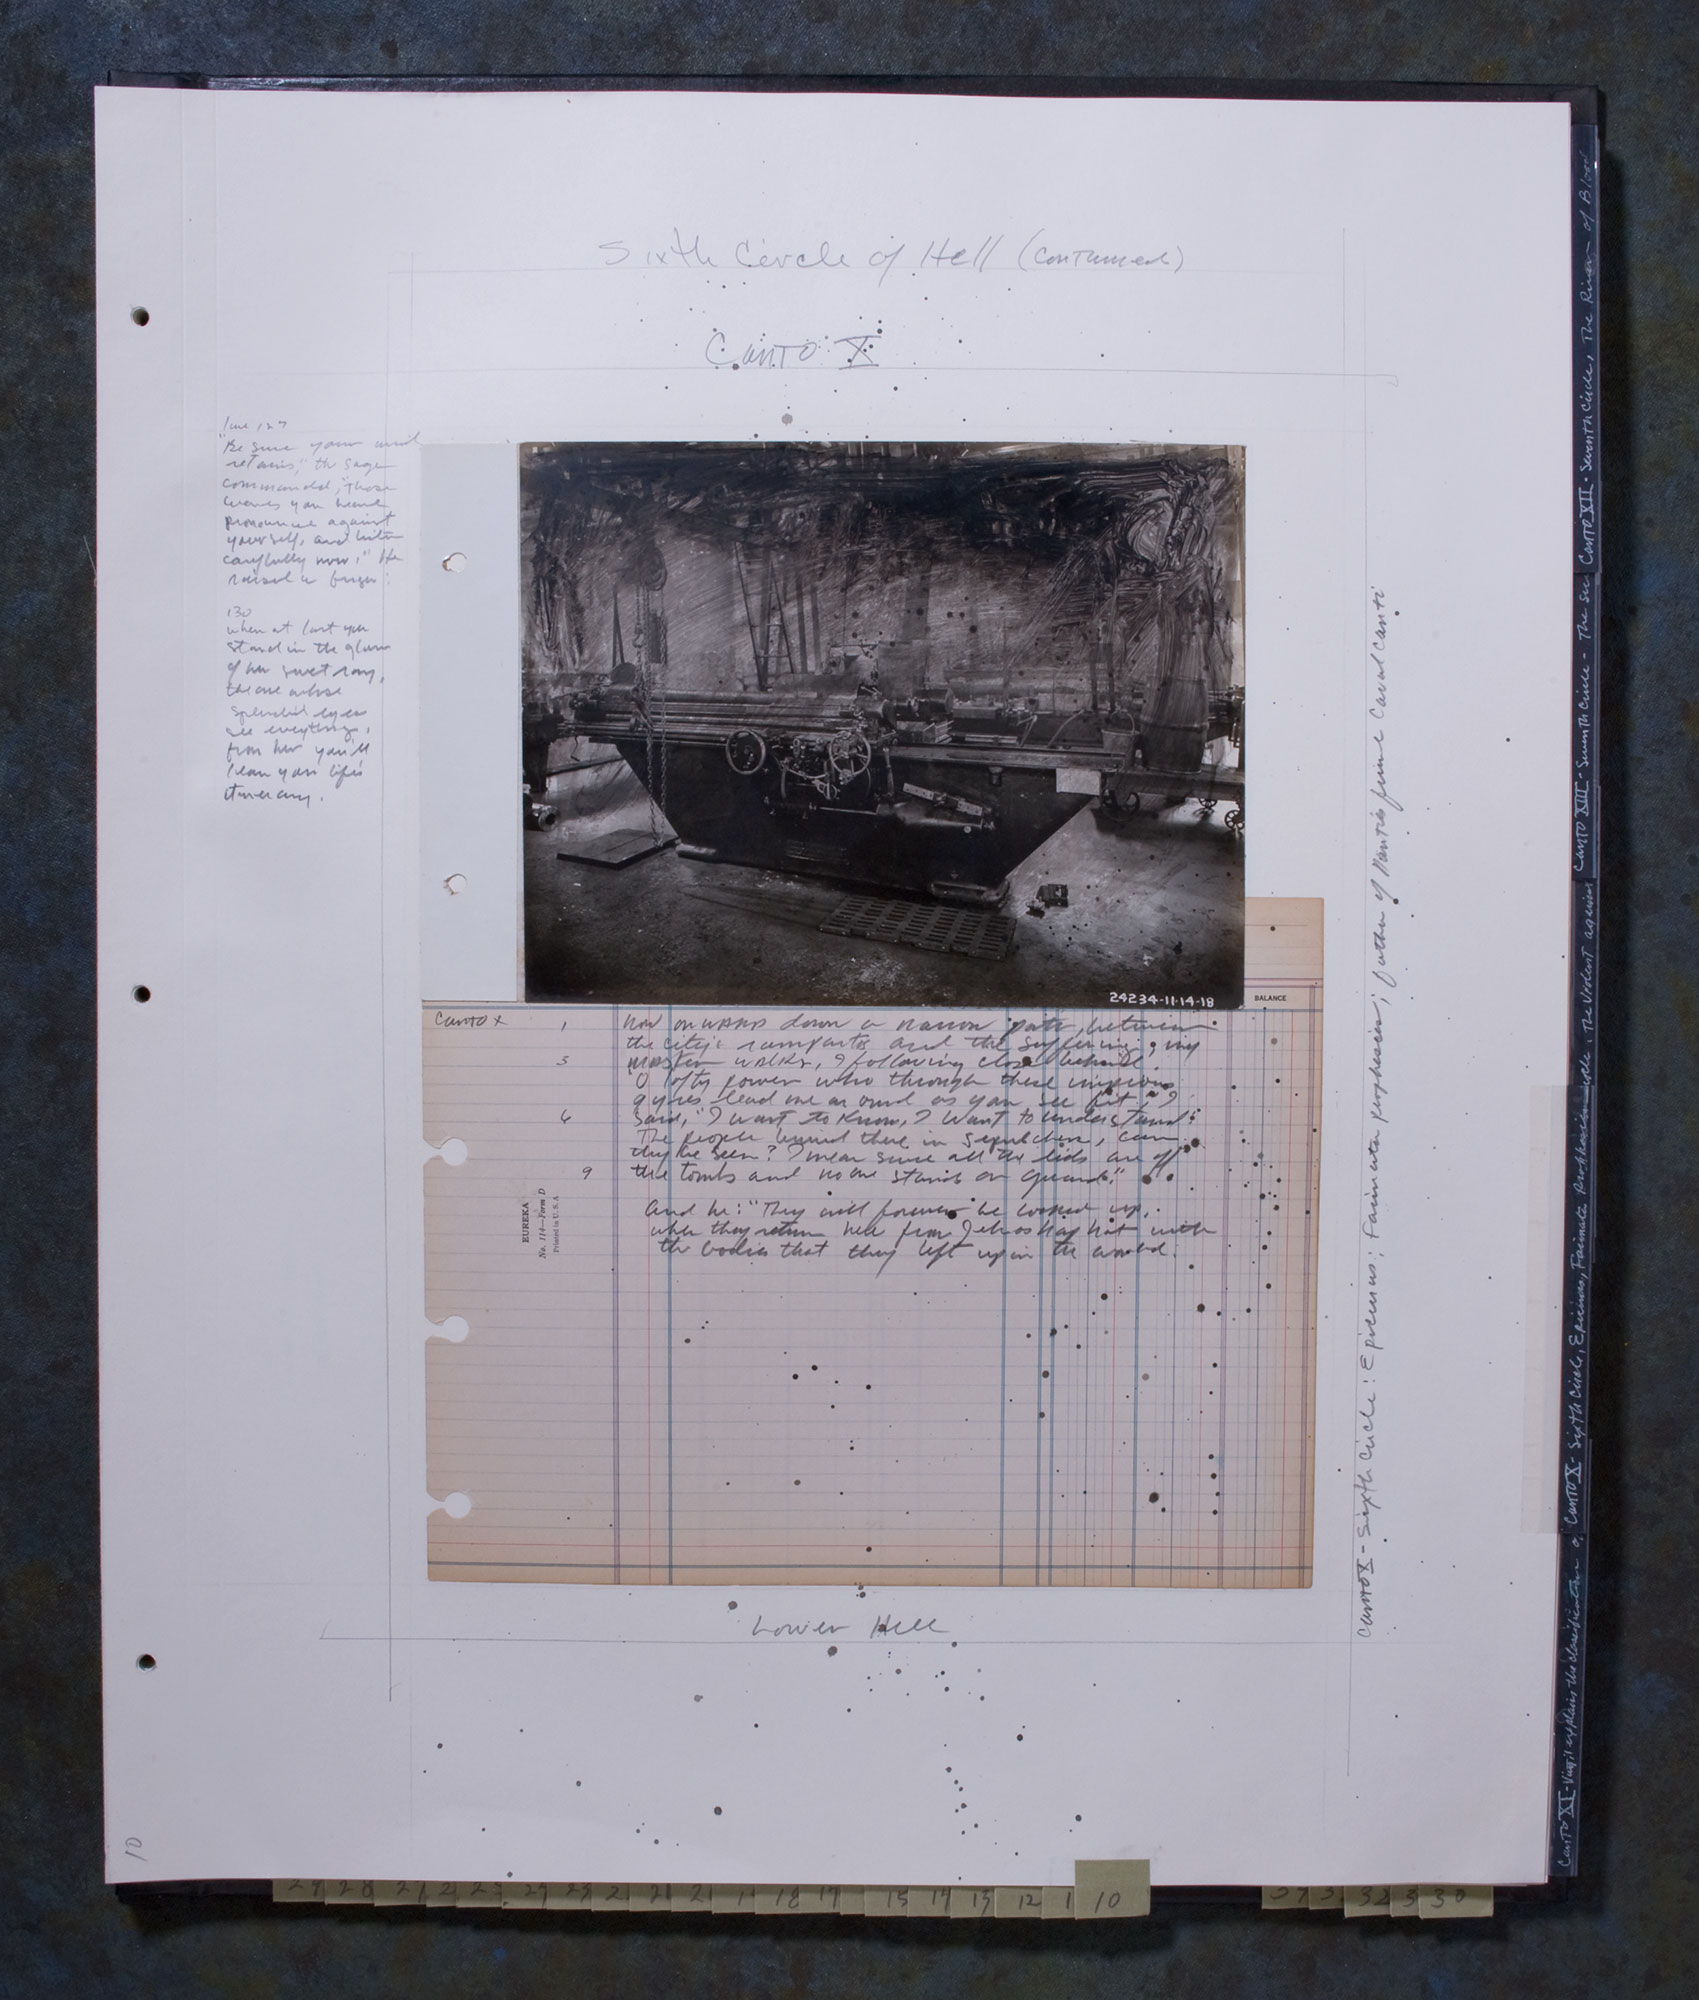 Sixth Circle of Hell (continued)
Canto X
line 127
"Be sure your mind
retains," the sage
commanded, "those
you heard
pronounce against
yourself, and listen
carefully now." He
raised a finger:
130
when at last you
stand in the glow
of her sweet ray,
the one whose
splendid eyes
see everything,
from her you'll
learn your life's
itinerary.
24234-11-14-18
BALANCE
Canto X 1 Now onward down a narrow path, between
the city's ramparts and the suffering, my
3 master walks, I following close behind.
"O lofty power who through these impious
gyres lead me around as you see fit," I
6 said, "I want to know, I want to understand:
The people buried there in sepulchers, can
they be seen? I mean since all the lids are off
9 the tombs and no one stands on guard."
And he: "They will forever be locked up,
when they return here from Jehoshaphat with
the bodies that they left up in the world.
EUREKA
No. 114—Form D
Printed in U.S.A
Lower Hell
Canto X - Sixth Circle: Epicurus; Farinata prophecies; father of Dante's friend Cavalcanti
Canto XI - Virgil explains the classification of
Canto X - Sixth Circle, Epicurus, Farinata
the violent against
Canto XIII - Seventh Circle - The
Canto XII - Seventh Circle, The River of Blood
10
29 28 18 15 14 13 12 1 10
32 3 30